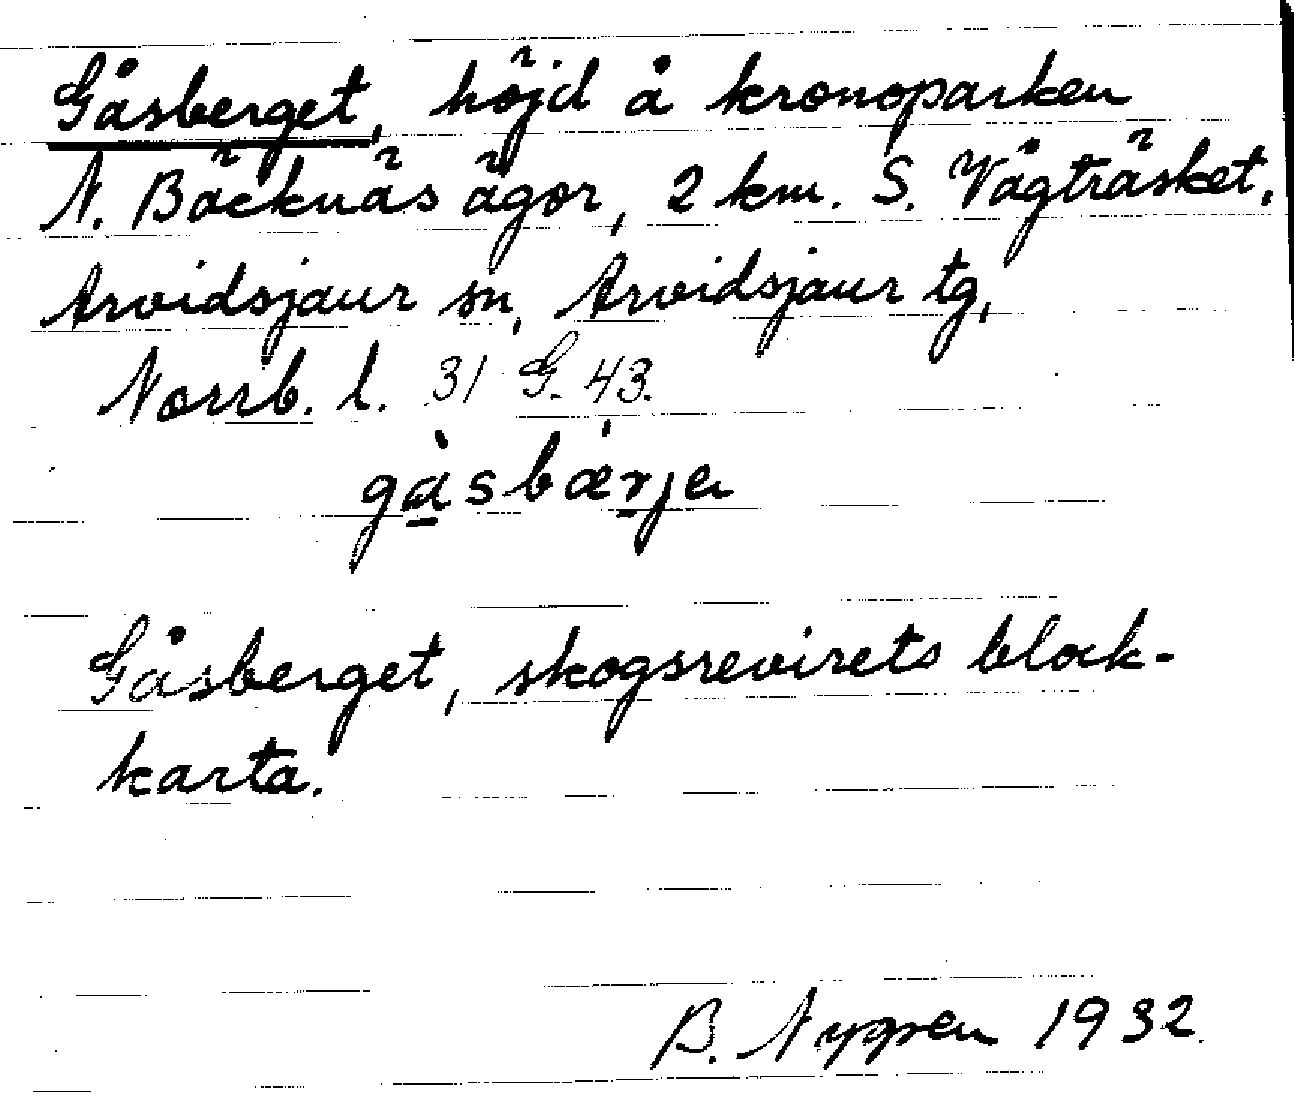 Gåsberget, höjd å kronoparken
N. Bäcknäs ägor, 2 km. S. Vågträsket,
Arvidsjaur sn, Arvidsjaur tg,
Norrb. l. 31 G. 43.
gàsbǽrjen
Gåsberget, skogsrevirets block-
karta.
B. Nygren 1932.